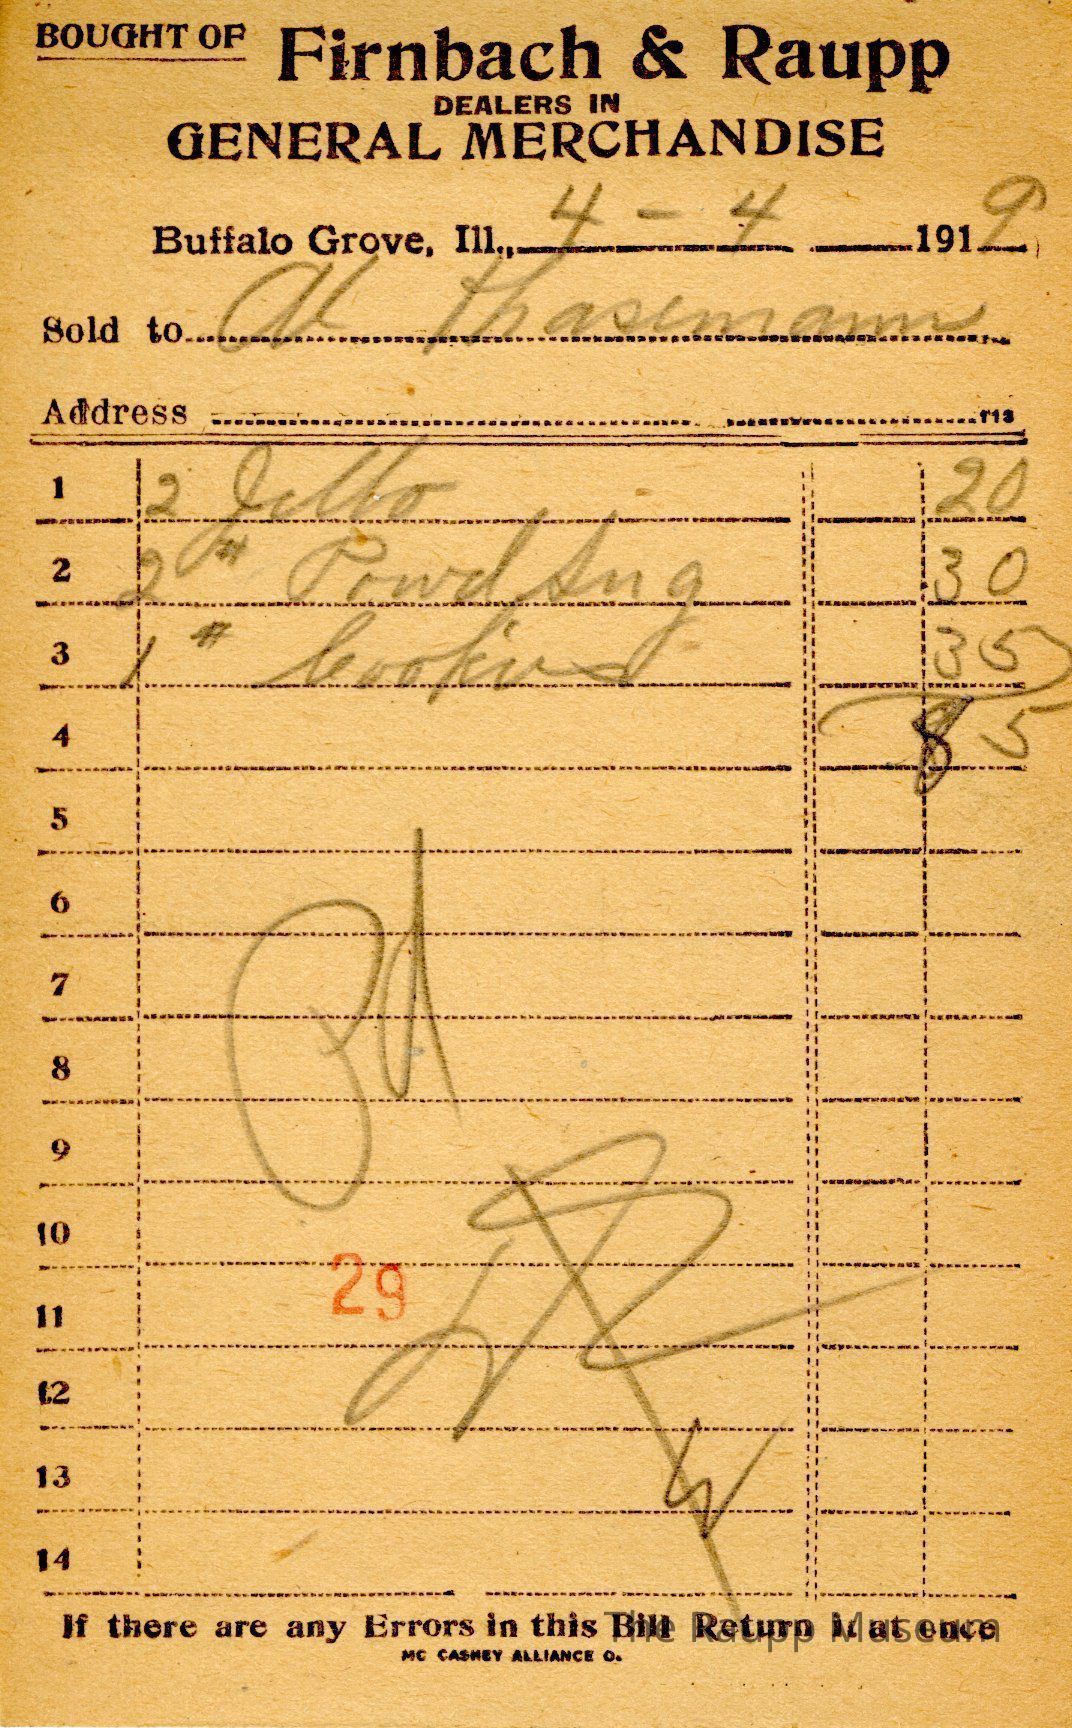 BOUGHT OF Firnbach & Raupp
DEALERS IN
GENERAL MERCHANDISE
Buffalo Grove, Ill., 4 - 4 1919
Sold to Thasemann
Address
1 2 Jello 20
2 2 # Powd Sug 30
3 1 # Cookies 35
4 85
5
6
7
8
9
10
11
12
13
14
Pd
29
If there are any Errors in this Bill Return it at once
The Raupp Museum
MC CASKEY ALLIANCE O.